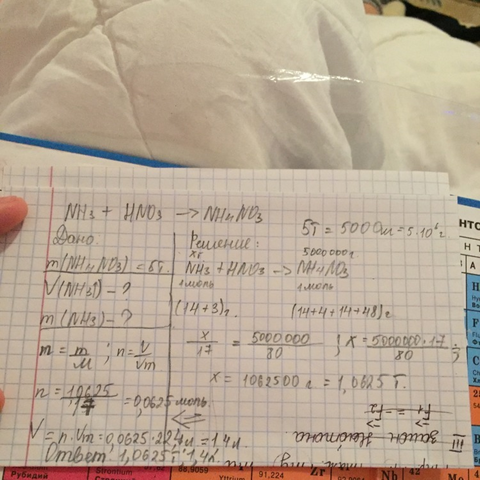 NH3 + HNO3 → NH4NO3
Дано
m(NH4NO3) = 5т.
V(NH3) - ?
m(NH3) - ?
m = m/M ; n = V/Vm
n = 10625/17 = 0,0625 моль.
V = n·Vm = 0,0625·22,4л = 1,4л.
Ответ: 1,0625т. 1,4л.
5т = 5000кг = 5·10⁶г
Решение:
xг 5000000г
NH3 + HNO3 → NH4NO3
1моль 1моль
(14+3)г. (14+4+14+48)г
x/17 = 5000000/80 ; x = 5000000·17/80 ;
x = 1062500г = 1,0625т.
F1 = -F2
III закон Ньютона
Рубидий
Стронций
88,9059
91,224
Zr
Nb
42